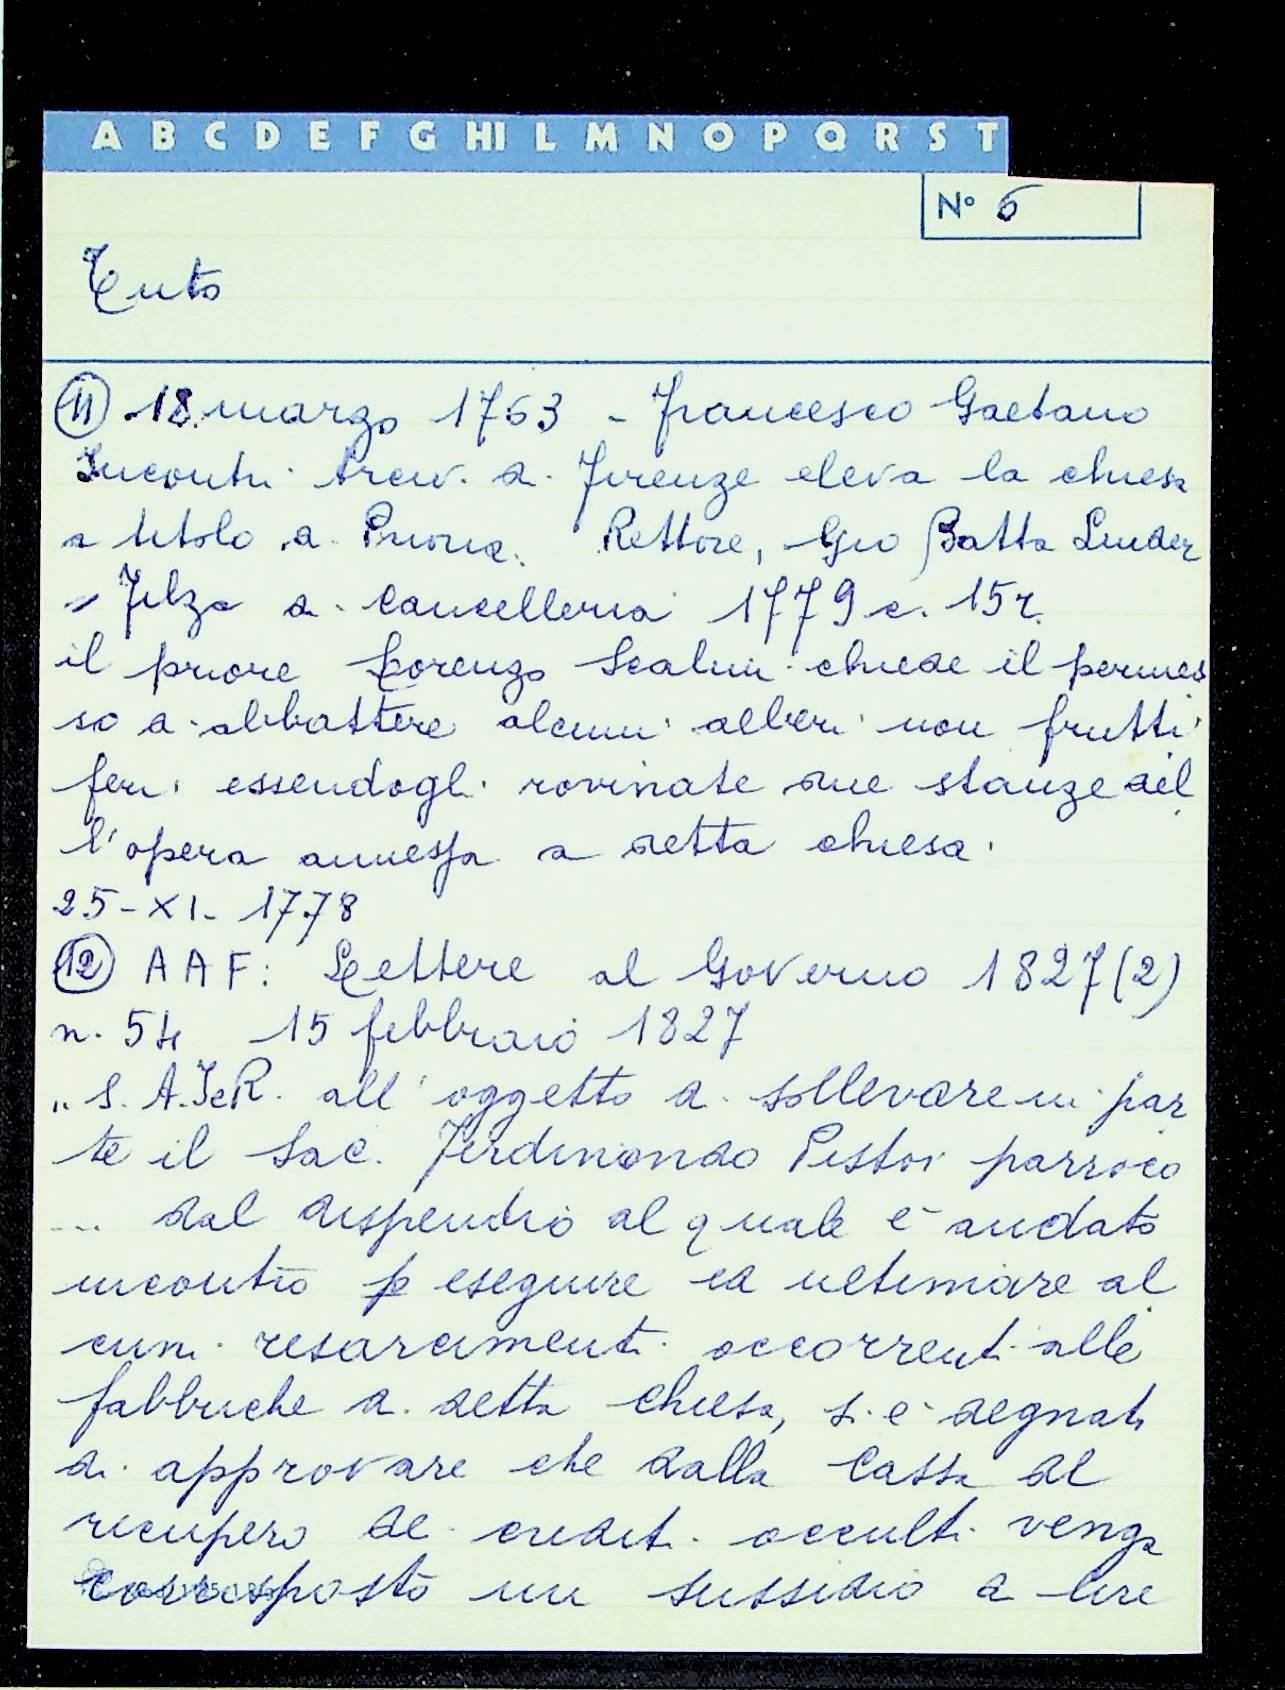 A B C D E F G HI L M N O P Q R S T
N° 6
Tuto
(11) 18. marzo 1763 - Francesco Gaetano
Incontri Arciv. di Firenze eleva la chiesa
a titolo di Prioria. Rettore, Gio Batta Linder
" Filza di Cancelleria 1779 c. 15r.
il priore Lorenzo Scalini chiede il permes
so di abbattere alcuni alberi non frutti
feri essendogli rovinate due stanze del
l'opera annessa a detta chiesa.
25-XI-1778
(12) AAF: Lettere al Governo 1827 (2)
n. 54 15 febbraio 1827
"S. A. I e R. all'oggetto di sollevare in par
te il Sac. Ferdinando Pistoi parroco
... dal dispendio al quale è andato
incontro p eseguire ed ultimare al
cuni resarcimenti occorrenti alle
fabbriche di detta chiesa, si è degnata
di approvare che dalla Cassa del
recupero dei crediti occulti venga
corrisposto un sussidio di lire